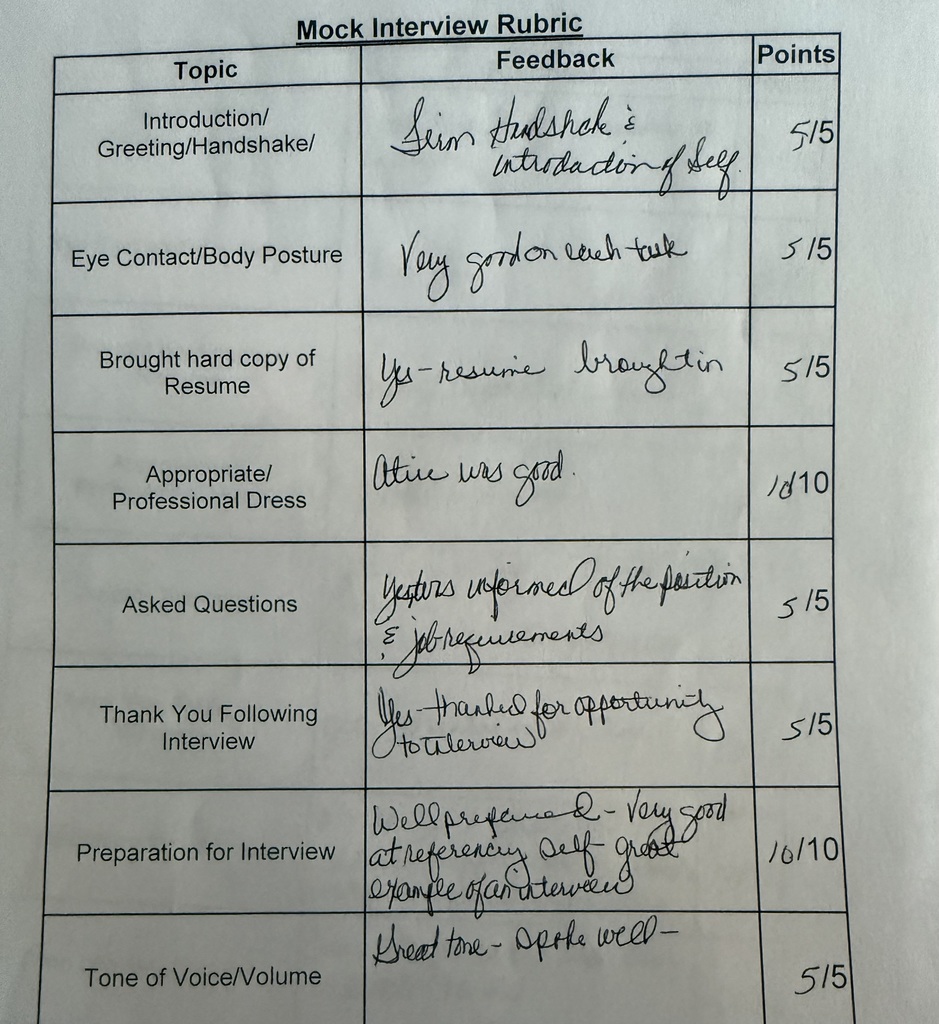 Mock Interview Rubric
Topic Feedback Points
Introduction/
Greeting/Handshake/
Firm Handshake &
introduction of Self.
5/5
Eye Contact/Body Posture
Very good on each task
5/5
Brought hard copy of
Resume
Yes - resume brought in
5/5
Appropriate/
Professional Dress
Atire was good.
10/10
Asked Questions
informed of the position
& job requirements
5/5
Thank You Following
Interview
Yes - thanked for opportunity
to interview
5/5
Preparation for Interview
Well prepared - Very good
at referencing self - great
example of an interview
10/10
Tone of Voice/Volume
Great tone - Spoke well -
5/5